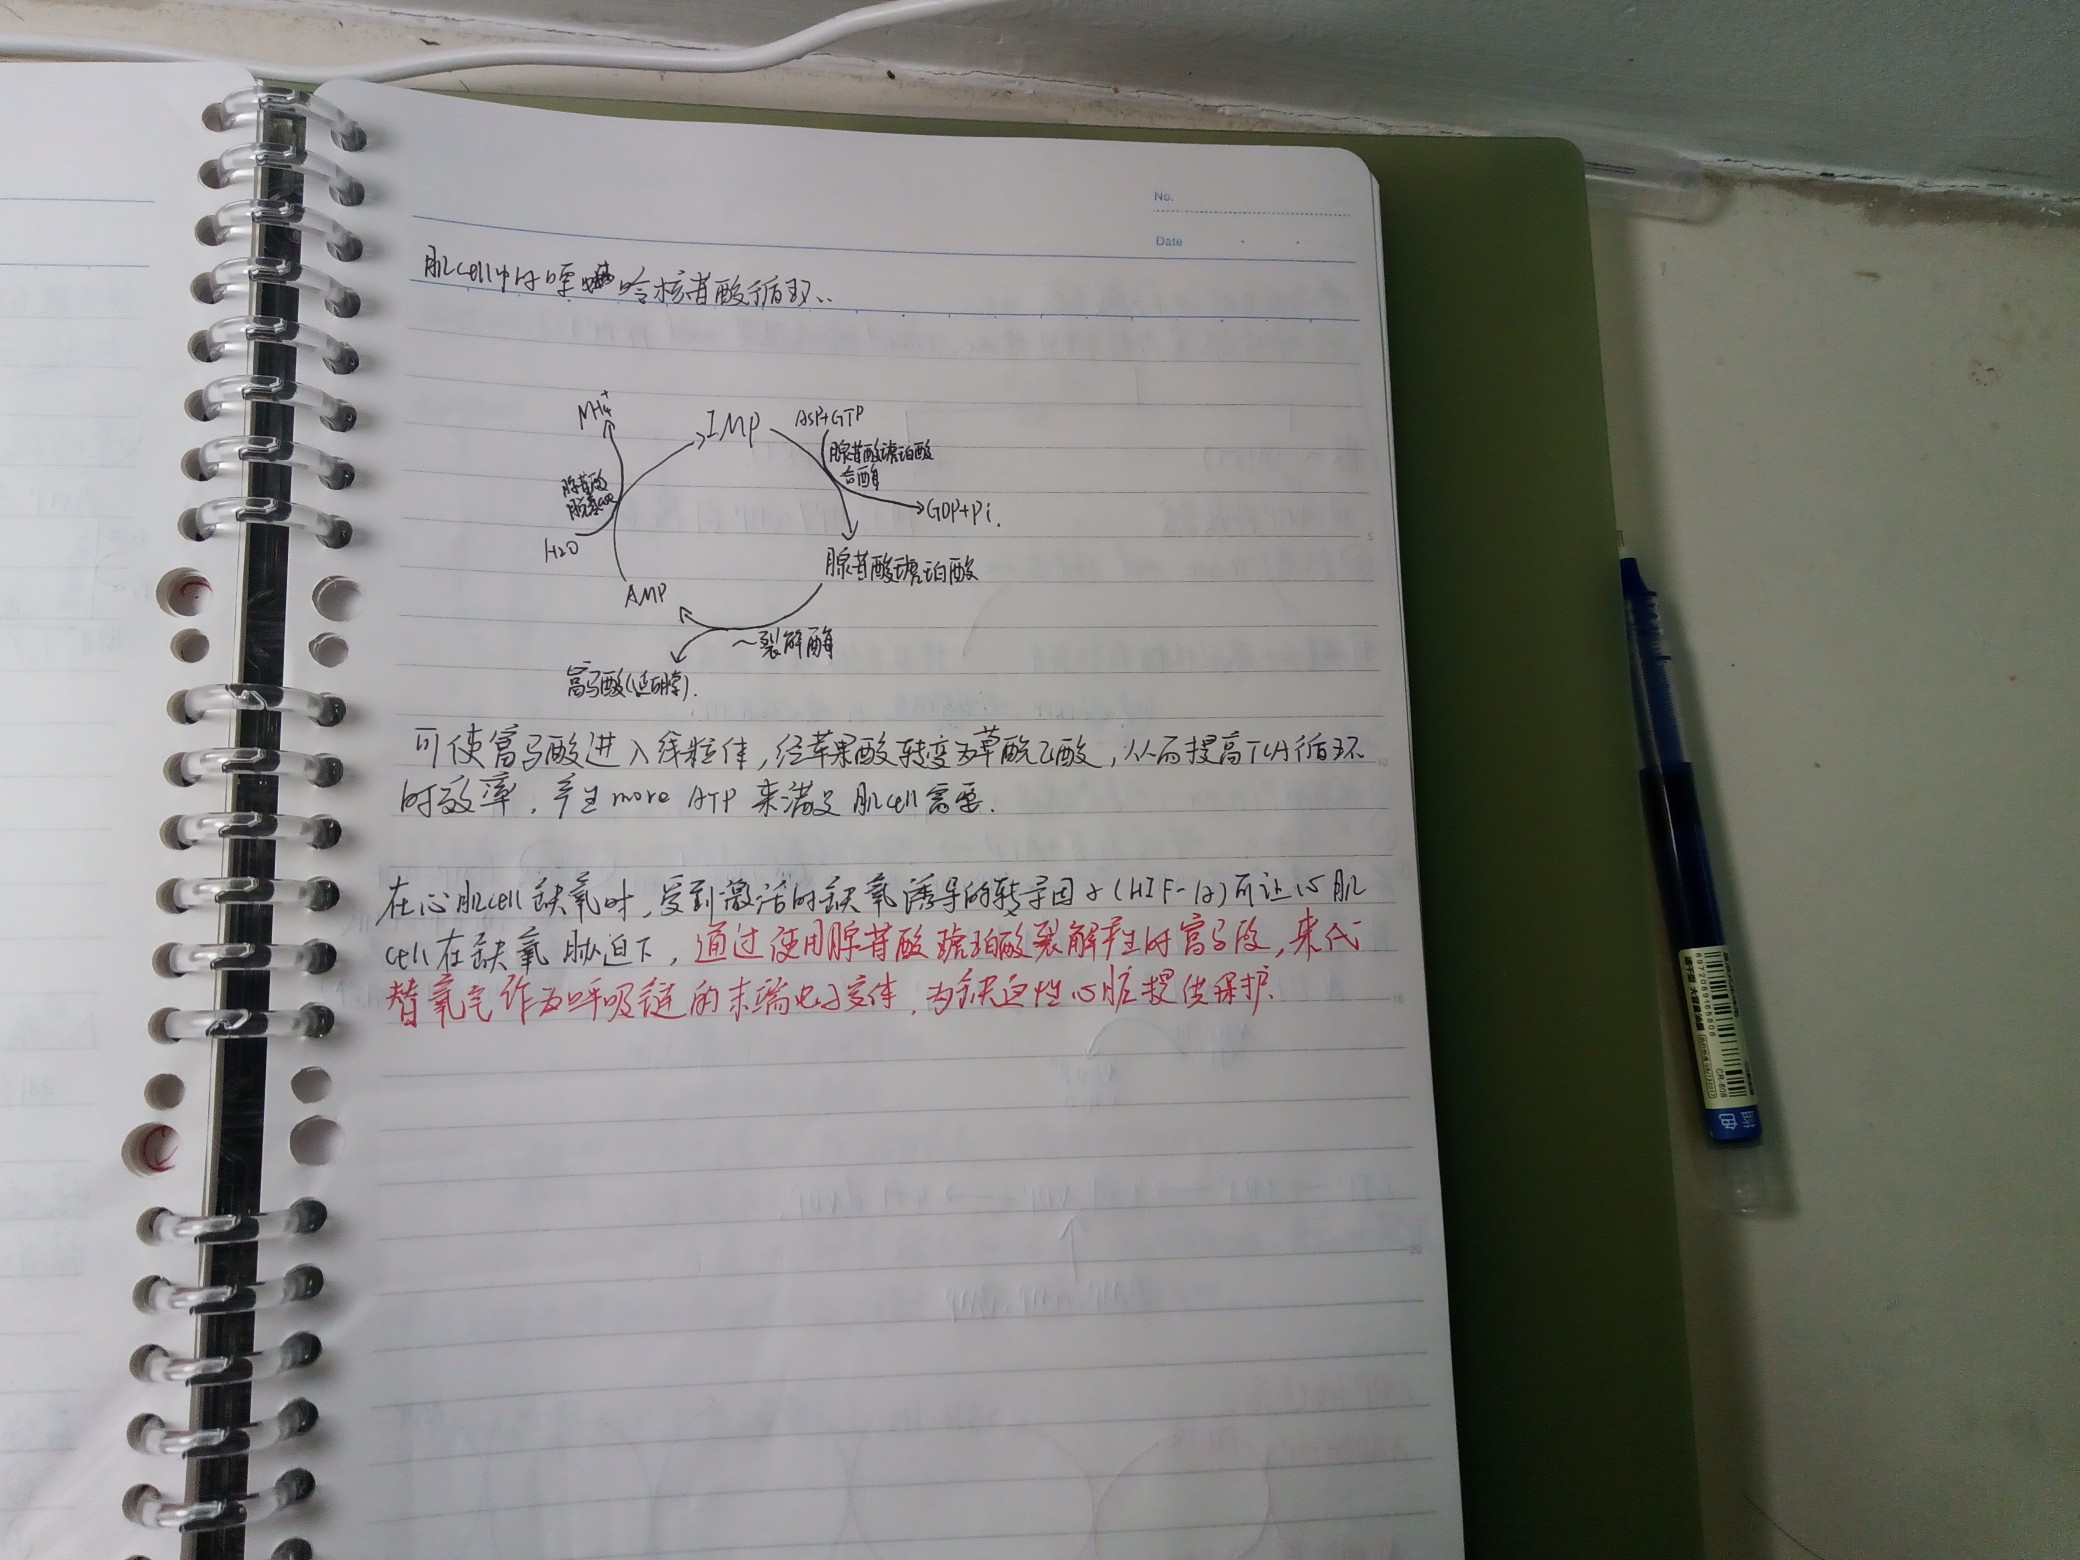 No.
Date
肌cell中的嘌呤核苷酸循环.
NH4+
IMP
ASP+GTP
腺苷酸琥珀酸
合酶
腺苷酸
脱氨
GDP+Pi.
H2O
腺苷酸琥珀酸
AMP
~裂解酶
富马酸(延胡索).
可使富马酸进入线粒体,经苹果酸转变为草酰乙酸,从而提高TCA循环
的效率,产生more ATP 来满足肌cell需要.
在心肌cell缺氧时,受到激活的缺氧诱导的转录因子(HIF-1α)可让心肌
cell在缺氧胁迫下,通过使用腺苷酸琥珀酸裂解产生的富马酸,来代
替氧气作为呼吸链的末端电子受体,为缺血性心脏提供保护.
6972085165808
CR-608